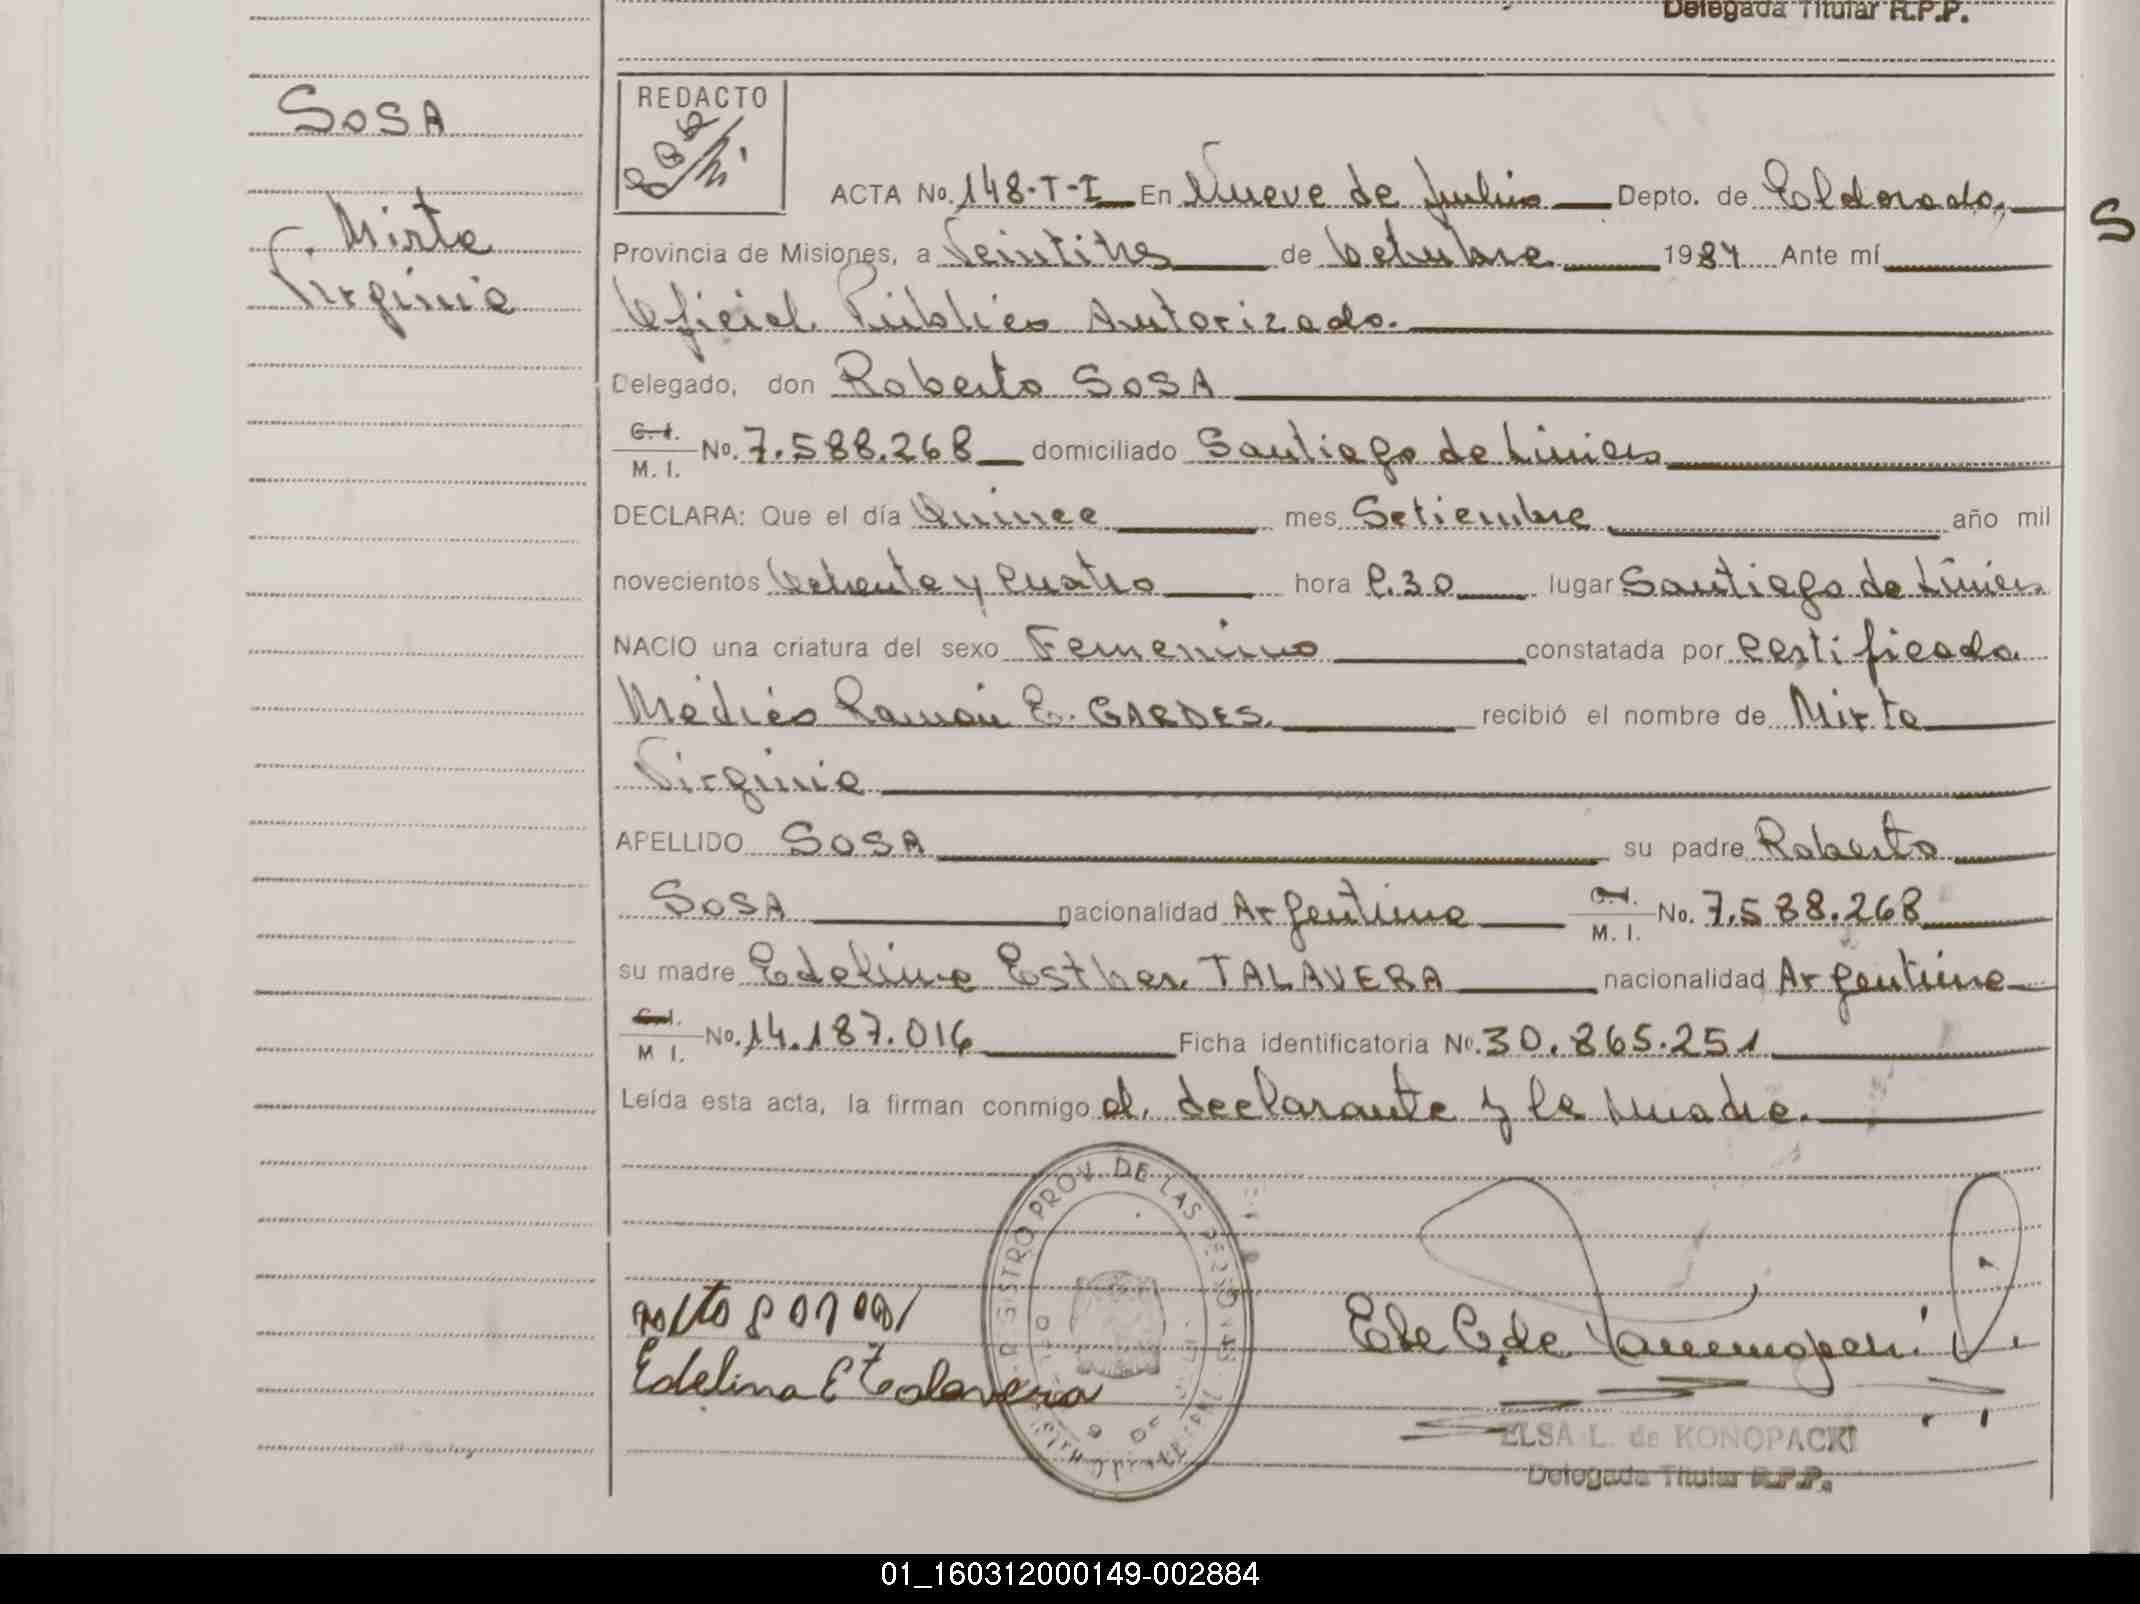 Delegada Titular R.P.P.
SOSA
Mirta
Virginia
REDACTO
ACTA No. 148-T-I En Nueve de Julio Depto. de Eldorado,
Provincia de Misiones, a Veintitres de Octubre 1984 Ante mí
Oficial Público Autorizado.
Delegado, don Roberto SOSA
C. I.
M. I. No. 7.588.268 domiciliado Santiago de Liniers
DECLARA: Que el día Quince mes Setiembre año mil
novecientos Ochenta y Cuatro hora 2.30 lugar Santiago de Liniers
NACIO una criatura del sexo Femenino constatada por Certificado
Médico Ramón E. GARDES. recibió el nombre de Mirta
Virginia
APELLIDO SOSA su padre Roberto
SOSA nacionalidad Argentina C. I. M. I. No. 7.588.268
su madre Edelina Esther TALAVERA nacionalidad Argentina
C. I.
M I. No. 14.187.016 Ficha identificatoria No. 30.865.251
Leída esta acta, la firman conmigo el declarante y la madre.
REGISTRO PROV. DE LAS PERSONAS
Edelina E Talavera
ELSA L. de KONOPACKI
Delegada Titular R.P.P.
S
01_160312000149-002884